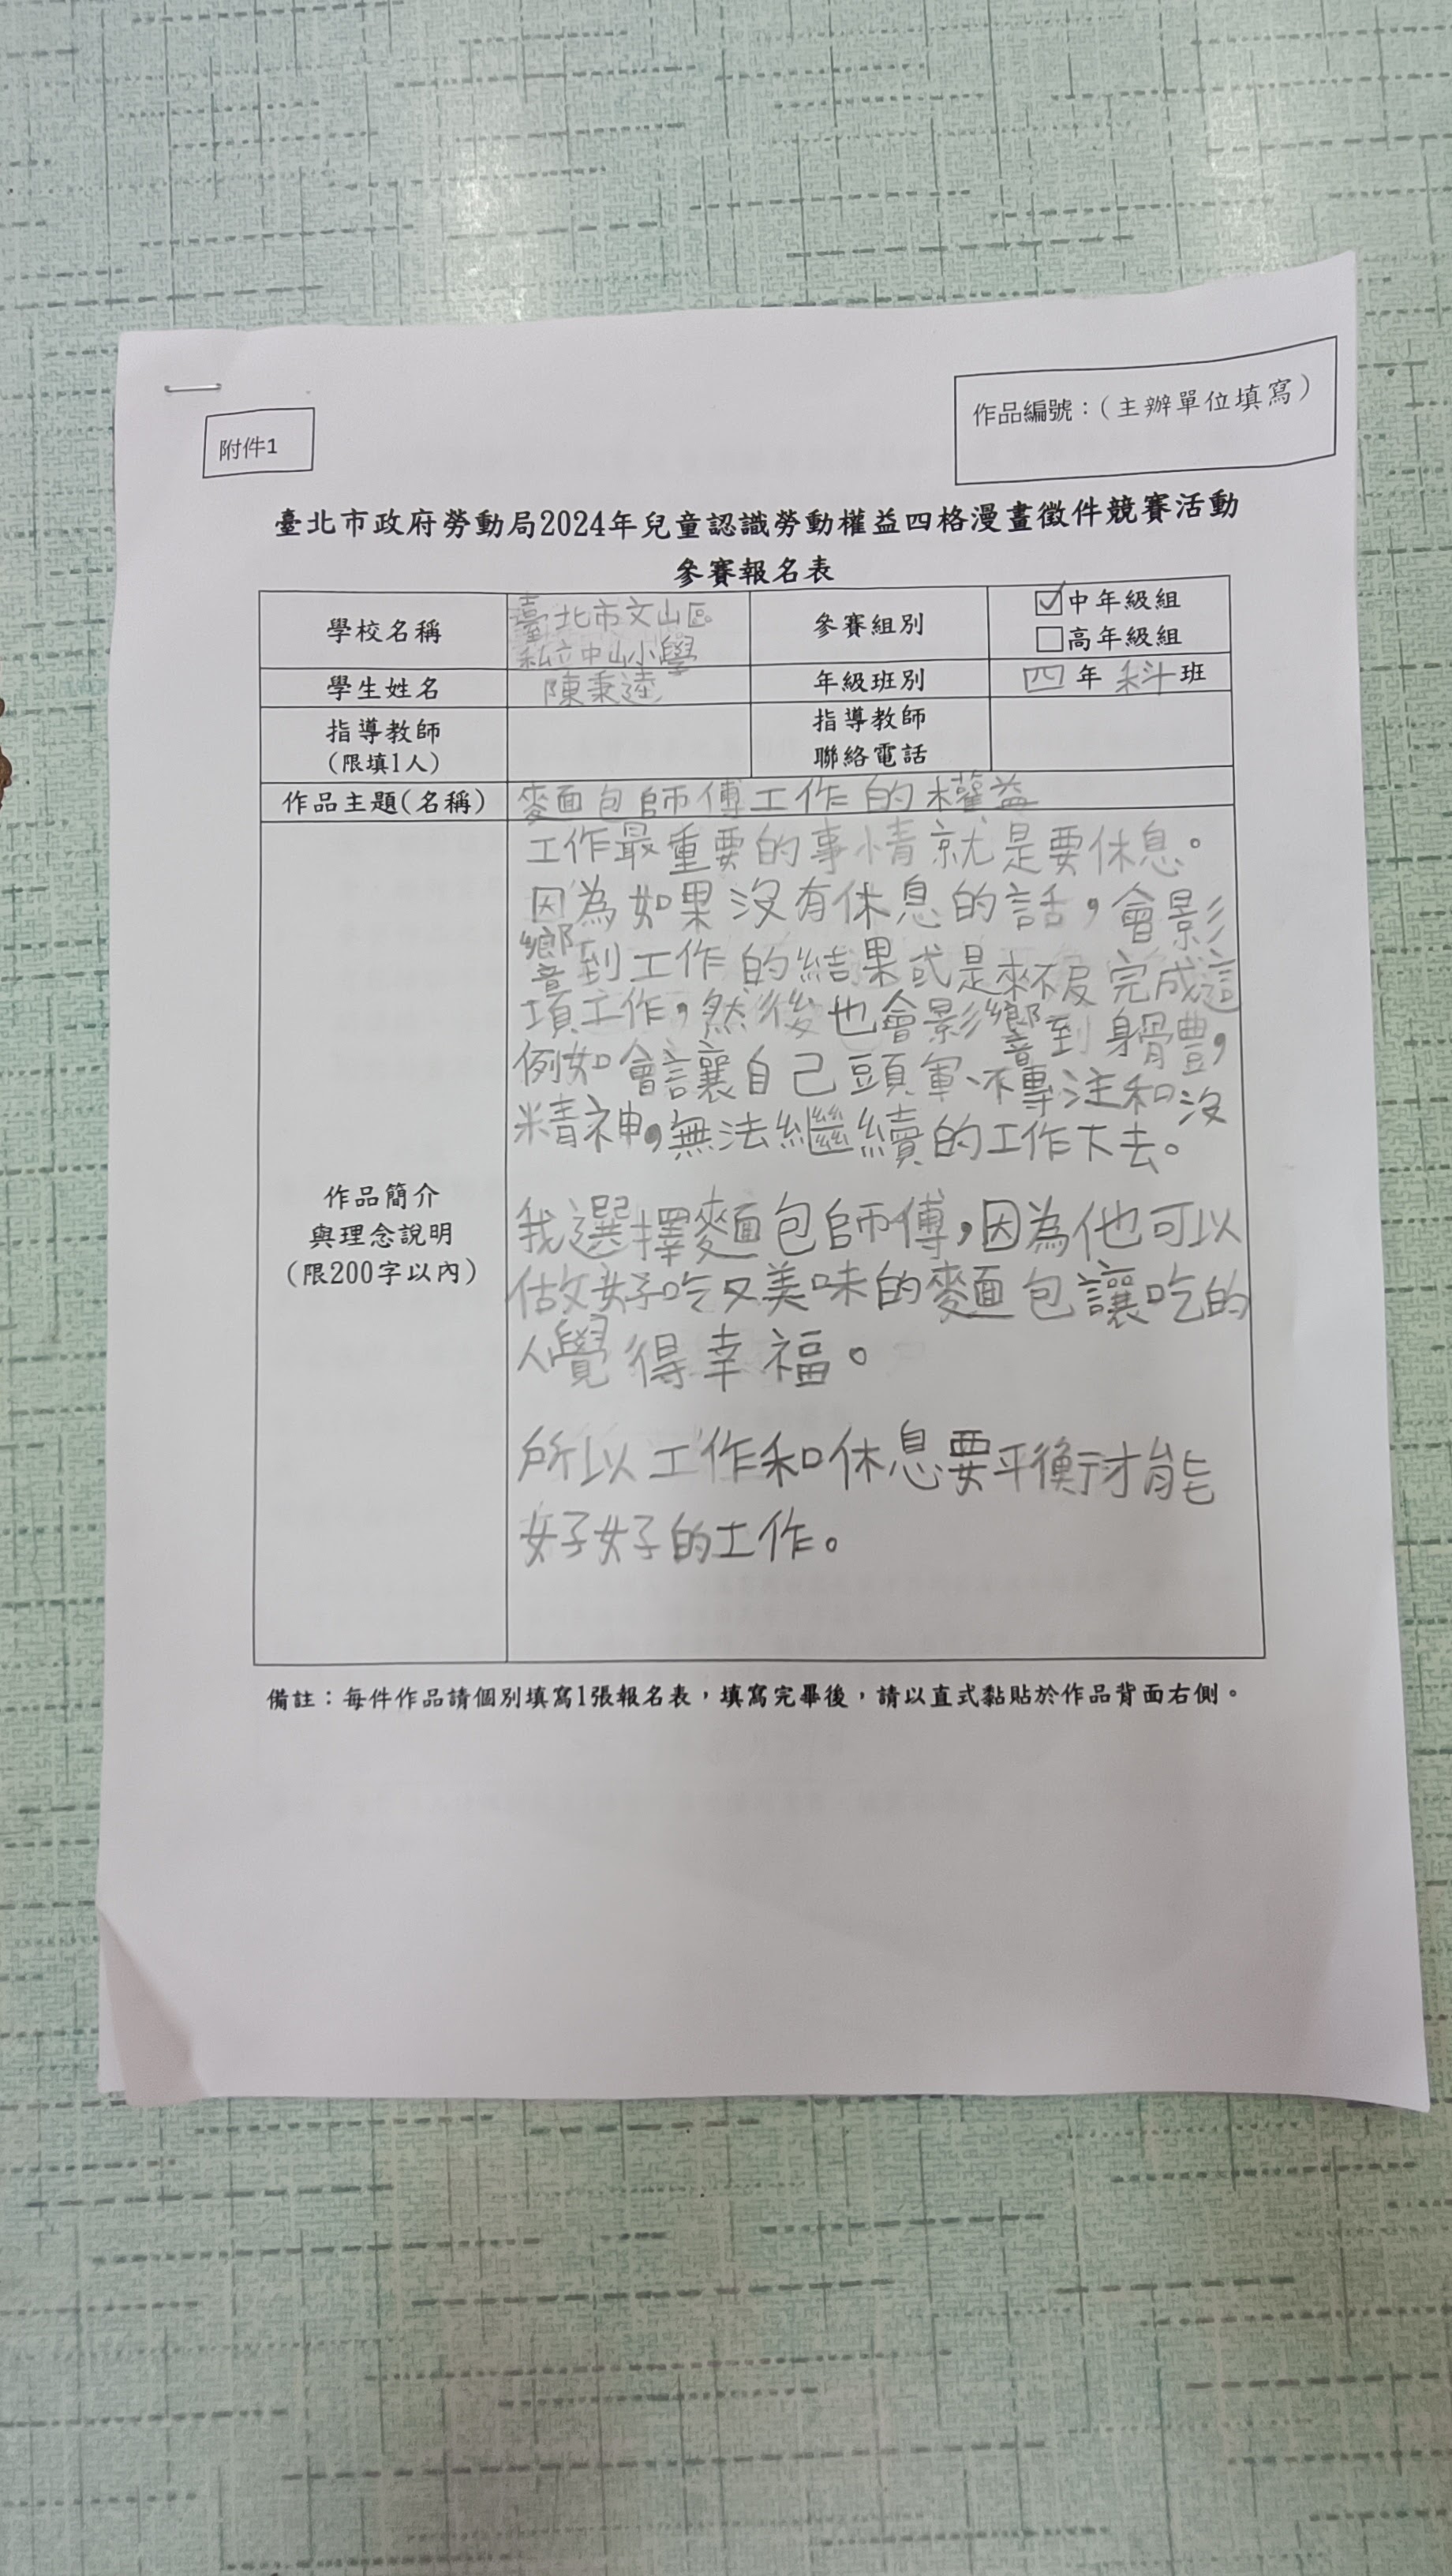 附件1
作品編號：(主辦單位填寫)
臺北市政府勞動局2024年兒童認識勞動權益四格漫畫徵件競賽活動
參賽報名表
學校名稱
臺北市文山區
私立中山小學
參賽組別
☑中年級組
□高年級組
學生姓名
陳秉逵
年級班別
四年科班
指導教師
(限填1人)
指導教師
聯絡電話
作品主題(名稱)
麵包師傅工作的權益
作品簡介
與理念說明
(限200字以內)
工作最重要的事情就是要休息。
因為如果沒有休息的話，會影
響到工作的結果或是來不及完成這
項工作，然後也會影響到身體，
例如會讓自己頭暈、不專注和沒
精神，無法繼續的工作下去。
我選擇麵包師傅，因為他可以
做好吃又美味的麵包讓吃的
人覺得幸福。
所以工作和休息要平衡才能
好好的工作。
備註：每件作品請個別填寫1張報名表，填寫完畢後，請以直式黏貼於作品背面右側。